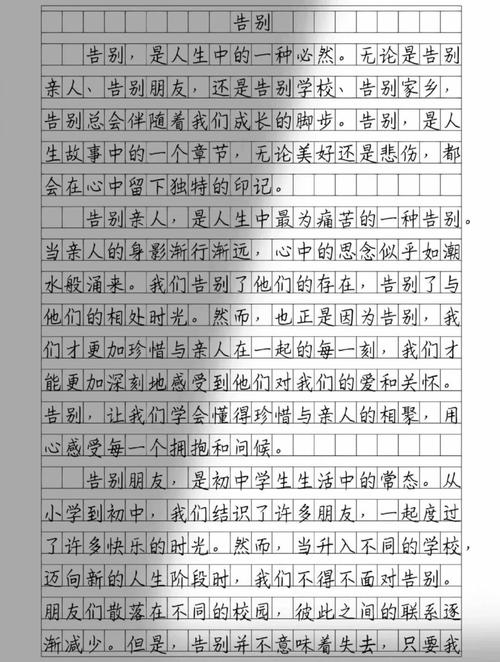 告别
告别，是人生中的一种必然。无论是告别
亲人、告别朋友，还是告别学校、告别家乡，
告别总会伴随着我们成长的脚步。告别，是人
生故事中的一个章节，无论美好还是悲伤，都
会在心中留下独特的印记。
告别亲人，是人生中最为痛苦的一种告别。
当亲人的身影渐行渐远，心中的思念似乎如潮
水般涌来。我们告别了他们的存在，告别了与
他们的相处时光。然而，也正是因为告别，我
们才更加珍惜与亲人在一起的每一刻，我们才
能更加深刻地感受到他们对我们的爱和关怀。
告别，让我们学会懂得珍惜与亲人的相聚，用
心感受每一个拥抱和问候。
告别朋友，是初中学生生活中的常态。从
小学到初中，我们结识了许多朋友，一起度过
了许多快乐的时光。然而，当升入不同的学校，
迈向新的人生阶段时，我们不得不面对告别。
朋友们散落在不同的校园，彼此之间的联系逐
渐减少。但是，告别并不意味着失去，只要我